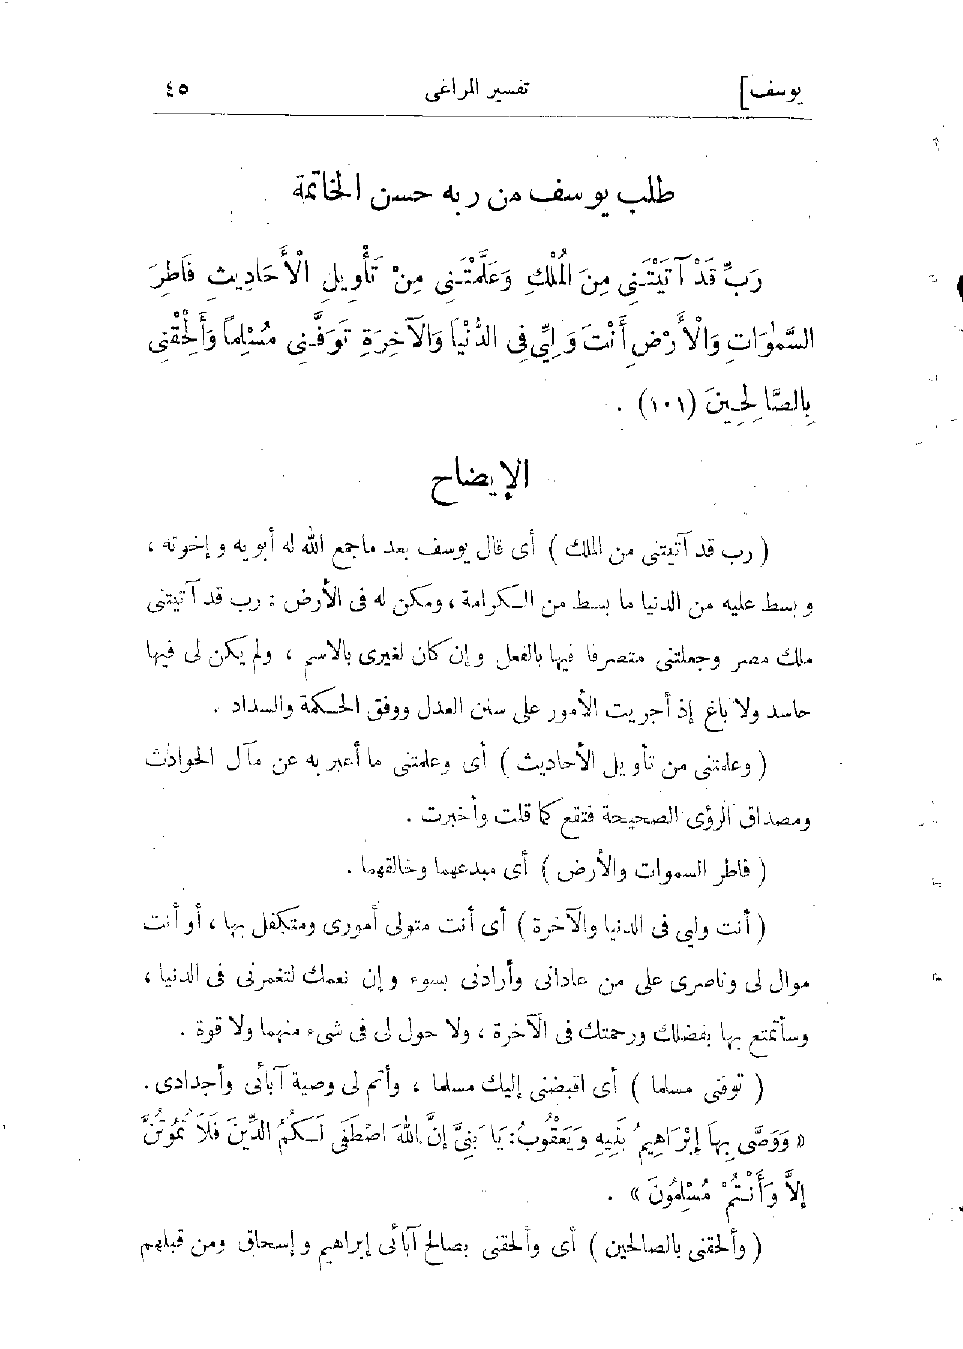 يوسف]
تفسير المراغى
٤٥
طلب يوسف من ربه حسن الخاتمة
رَبِّ قَدْ آتَيْتَنِى مِنَ الْمُلْكِ وَعَلَّمْتَنِى مِنْ تَأْوِيلِ الْأَحَادِيثِ فَاطِرَ
السَّمٰوَاتِ وَالْأَرْضِ أَنْتَ وَلِيِّى فِى الدُّنْيَا وَالْآخِرَةِ تَوَفَّنِى مُسْلِمًا وَأَلْحِقْنِى
بِالصَّالِحِينَ (١٠١) .
الإيضاح
( رب قد آتيتنى من الملك ) أى قال يوسف بعد ماجمع الله له أبويه وإخوته ،
وبسط عليه من الدنيا ما بسط من الكرامة ، ومكن له فى الأرض : رب قد آتيتنى
ملك مصر وجعلتنى متصرفا فيها بالفعل وإن كان لغيرى بالاسم ، ولم يكن لى فيها
حاسد ولا باغ إذ أجريت الأمور على سنن العدل ووفق الحكمة والسداد .
( وعلمتنى من تأويل الأحاديث ) أى وعلمتنى ما أعبر به عن مآل الحوادث
ومصداق الرؤى الصحيحة فتقع كما قلت وأخبرت .
( فاطر السموات والأرض ) أى مبدعهما وخالقهما .
( أنت وليي فى الدنيا والآخرة ) أى أنت متولى أمورى ومتكفل بها ، أو أنت
موال لى وناصرى على من عادانى وأرادنى بسوء وإن نعمك لتغمرنى فى الدنيا ،
وسأتمتع بها بفضلك ورحمتك فى الآخرة ، ولا حول لى فى شىء منهما ولا قوة .
( توفنى مسلما ) أى اقبضنى إليك مسلما ، وأتم لى وصية آبائى وأجدادى .
« وَوَصَّى بِهَا إِبْرَاهِيمُ بَنِيهِ وَيَعْقُوبُ: يَا بَنِىَّ إِنَّ اللهَ اصْطَفَى لَكُمُ الدِّينَ فَلَا تَمُوتُنَّ
إِلاَّ وَأَنْتُمْ مُسْلِمُونَ » .
( وألحقنى بالصالحين ) أى وألحقنى بصالح آبائى إبراهيم وإسحاق ومن قبلهم